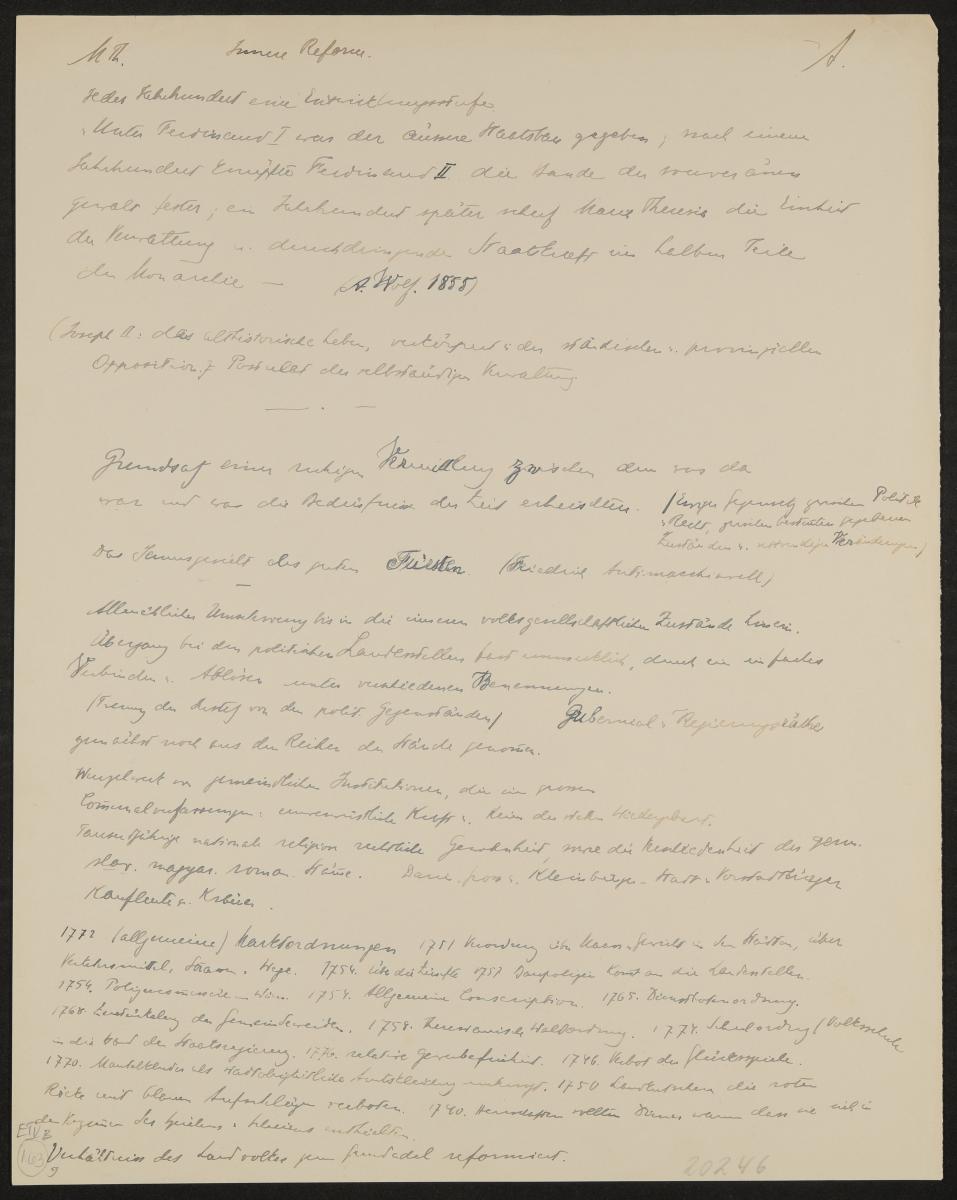 M Th. Innere Reform. A.
Jedes Jahrhundert eine Entwicklungsstufe
"Unter Ferdinand I war der äussere Staatsbau gegeben, nach einem
Jahrhundert knüpfte Ferdinand II. die Bande der souveränen
gewalt fester; ein Jahrhundert später schuf Maria Theresia die Einheit
der Verwaltung u. durchdringende Staatskraft im halben Teile
der Monarchie — (A. Wolf. 1855)
(Joseph II: das althistorische Leben, verkörpert i. der ständischen u. provinziellen
Opposition, z Postulat der selbständigen Verwaltung
Grundsatz einer ruhigen Vermittlung zwischen dem was da
war und was die Bedürfnisse der Zeit erheischten. (Ewiger Gegensatz zwischen Politik
u Recht, zwischen bestimten gegebenen
Zuständen u. notwendigen Veränderungen)
Das Pflichtgefühl des guten Fürsten. (Friedrich Antimacchiavell)
Allmählicher Umschwung bis in die inneren volksgesellschaftlichen Zustände hinein.
Übergang bei den politischen Landesstellen fast unmerklich, durch ein einfaches
Verbinden u. Ablösen unter verschiedenen Benennungen.
(Trennung der Justiz von den polit. Gegenständen) Gubernial u Regierungsräthe
zunächst noch aus den Reihen der Stände genomen.
Wurzelwerk von gemeindlichen Institutionen, die im grossen
Communalverfassungen: unverwüstliche Kraft u. Keim der steten Wiedergeburt.
Tausendjährige nationale religiöse rechtliche Gewohnheit, sowie die Verschiedenheit des germ.
slav. magyar. roman. Stäme. Dann gross u. Kleinbürger Stadt u Vorstadtbürger
Kaufleute u. Krämer.
1772 (allgemeine) Marktordnungen 1751 Verordnung über Maass u Gewicht in den Städten, über
Verkehrsmittel, Strassen u. Wege. 1754. über die Zünfte 1757 Baupolizei kommt an die Landesstellen.
1754. Polizeicommissäre in Wien. 1754. Allgemeine Conscription. 1765. Dienstbotenordnung.
1768. Zerstückelung der Gemeindeweiden. 1758. Theresianische Waldordnung. 1774. Schulordnung (Volksschule
in die Hand der Staatsregierung. 1776. relative Gewerbefreiheit. 1746 Verbot der Glücksspiele.
1770. Mantelkleider als stadtobrigkeitliche Amtskleidung untersagt. 1750 Landkutschern die roten
Röcke und blauen Aufschläge verboten. 1740. Herrschaften sollten Diener warnen dass sie sich in
den des Spielens u enthielten.
Verhältniss des Landvolkes zum Grundadel reformiert.
E IV 2
163
9
20246